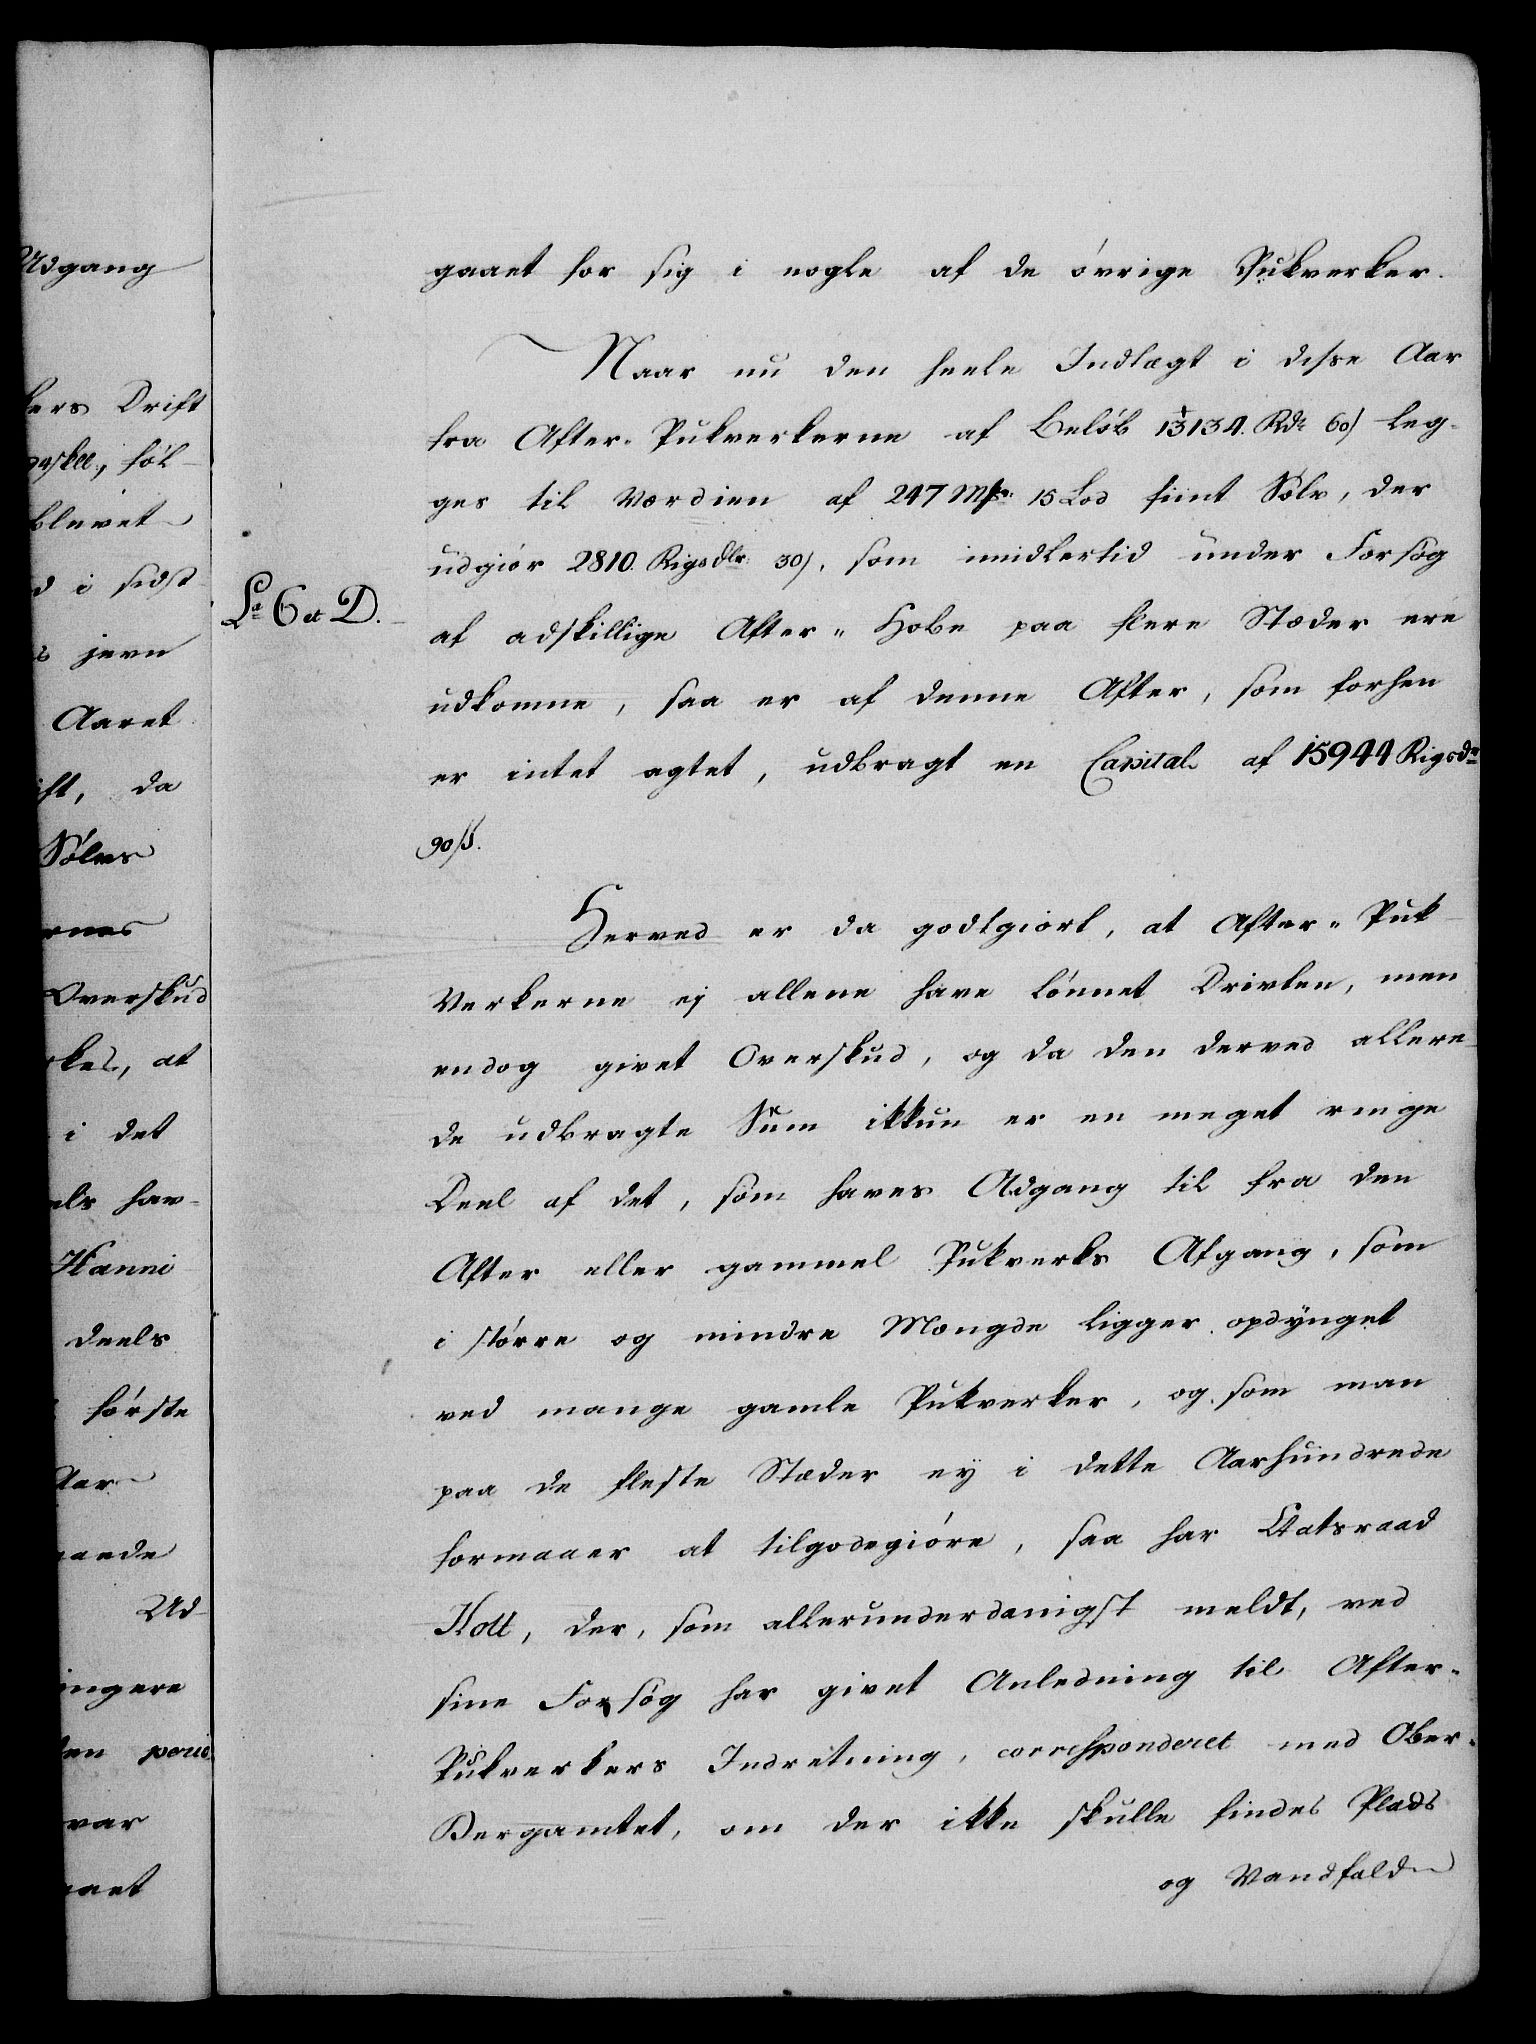 Udgang
kers Drift
føl-
blevet
d i sidst
jevn
Aaret
ift, da
Sølvs
ernes
Overskud
rkes, at
i det
els hav-
Hanni
deels
første
Aar
aaede
Ud-
ingere
en perio
var
aaet
gaaet for sig i nogle af de øvrige Pukverker.
Naar nu den heele Indtægt i disse Aar
fra After-Pukverkerne af Beløb 13134. Rdr 60 s leg-
ges til Værdien af 247 Mk. 15 Lod fiint Sølv, der
udgiør 2810. Rigsdlr. 30 s, som imidlertid under Forsøg
La C et D.
af adskillige After-Hobe paa flere Stæder ere
udkomne, saa er af denne After, som forhen
er intet agtet, udbragt en Capital af 15944 Rigsdr
90 ß.
Herved er da godtgiort, at After-Puk
Verkerne ej allene have lønnet Drivten, men
endog givet Overskud, og da den derved allere-
de udbragte Sum ikkun er en meget ringe
Deel af det, som haves Adgang til fra den
After eller gammel Pukverks Afgang, som
i større og mindre Mængde ligger opdynget
ved mange gamle Pukverker, og som man
paa de fleste Stæder ey i dette Aarhundrede
formaaer at tilgodegiøre, saa har Etatsraad
Holt, der, som allerunderdanigst meldt, ved
sine Forsøg har givet Anledning til After-
Pukverkers Indretning, corresponderet med Ober-
Bergamtet, om der ikke skulle findes Plads
og Vandfald